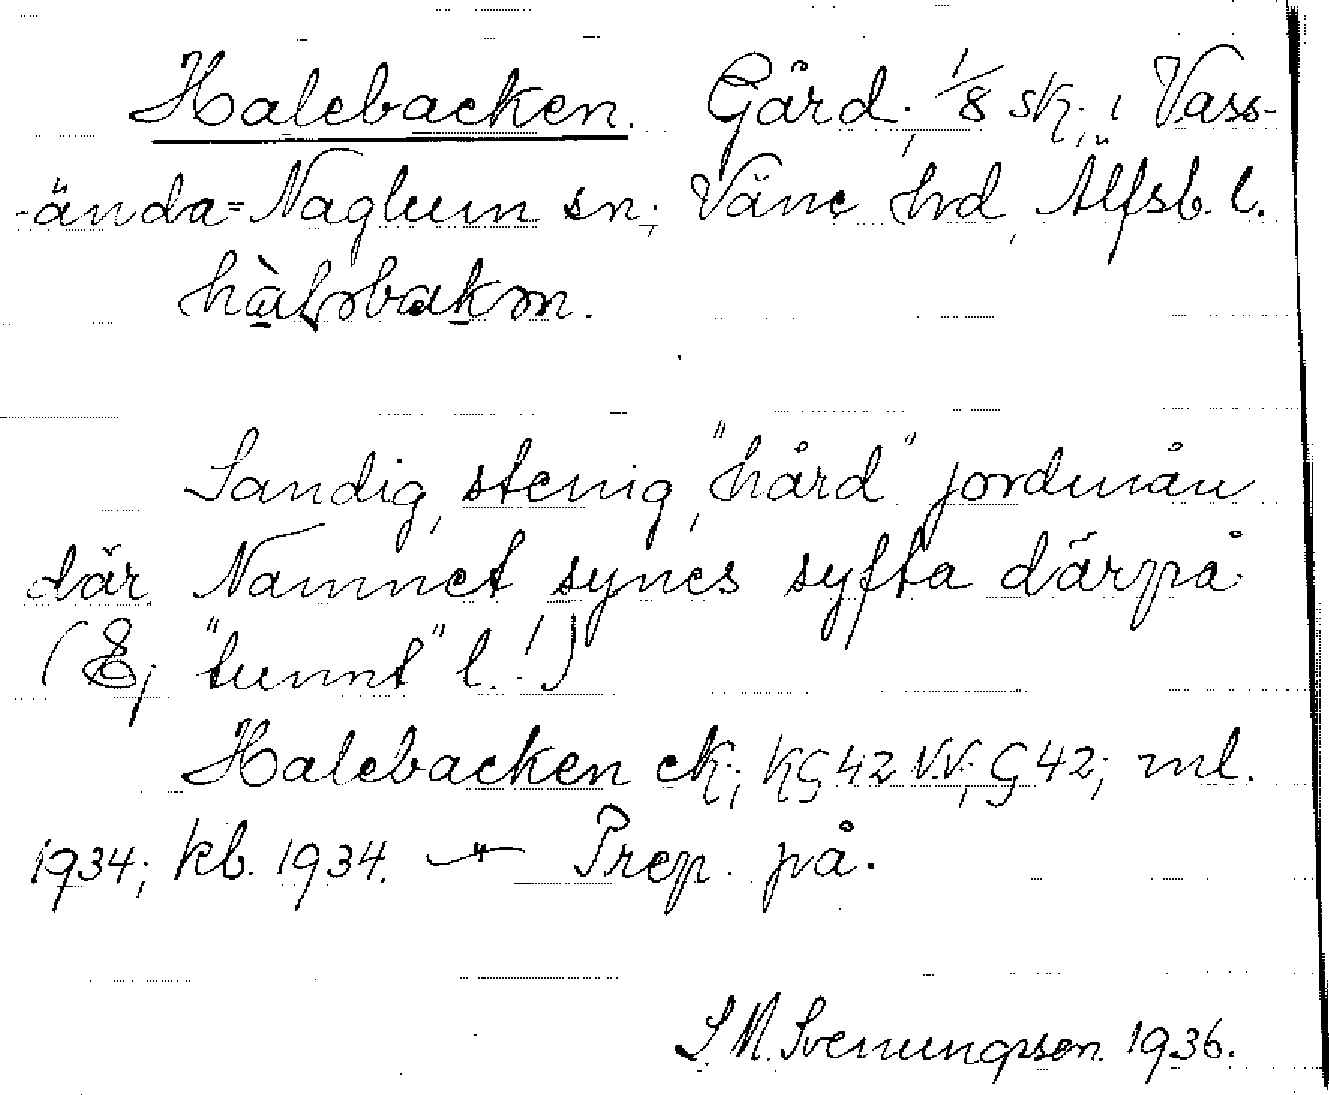 Halebacken. Gård, 1/8 sk., i Vass-
-ända-Naglum sn, Väne hrd, Älfsb. l.
Sandig, stenig, "hård" jordmån
där. Namnet synes syfta därpå.
(Ej "tunnt" l. !)
Halebacken ek; KG 42 V.V; G 42; ml.
1934; kb. 1934. — Prep. på.
S. M. Svenungsson. 1936.